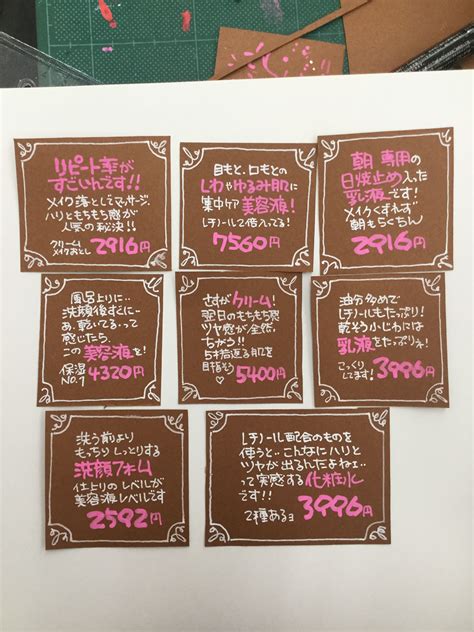 リピート率が
すごいんです!!
メイク落としてマッサージ。
ハリともちもち感が
人気の秘決!!
クリーム
メイクおとし
2916円
目もと、口もとの
しわやゆるみ肌に
集中ケア美容液!
レチノール2倍入ってる!
7560円
朝専用の
日焼止め入った
乳液です!
メイクくずれず
朝もらくちん
2916円
風呂上りに…
洗顔後すぐに…
あ、乾いてるって
感じたら、
この美容液を!
保湿
NO.1
4320円
さすがクリーム!
翌日のもちもち感
ツヤ感が全然、
ちがう!!
5才若返る肌を
目指そう
♡
5400円
油分多めで
レチノールもたっぷり!
乾そう小じわには
乳液をたっぷりネ!
こっくり
してます!
3996円
洗う前より
もっちりしっとりする
洗顔フォーム
仕上りのレベルが
美容液レベルです
2592円
レチノール配合のものを
使うと…こんなにハリと
ツヤが出るんだよねェ…
って実感する化粧水
です!!
3996円
2種あるヨ